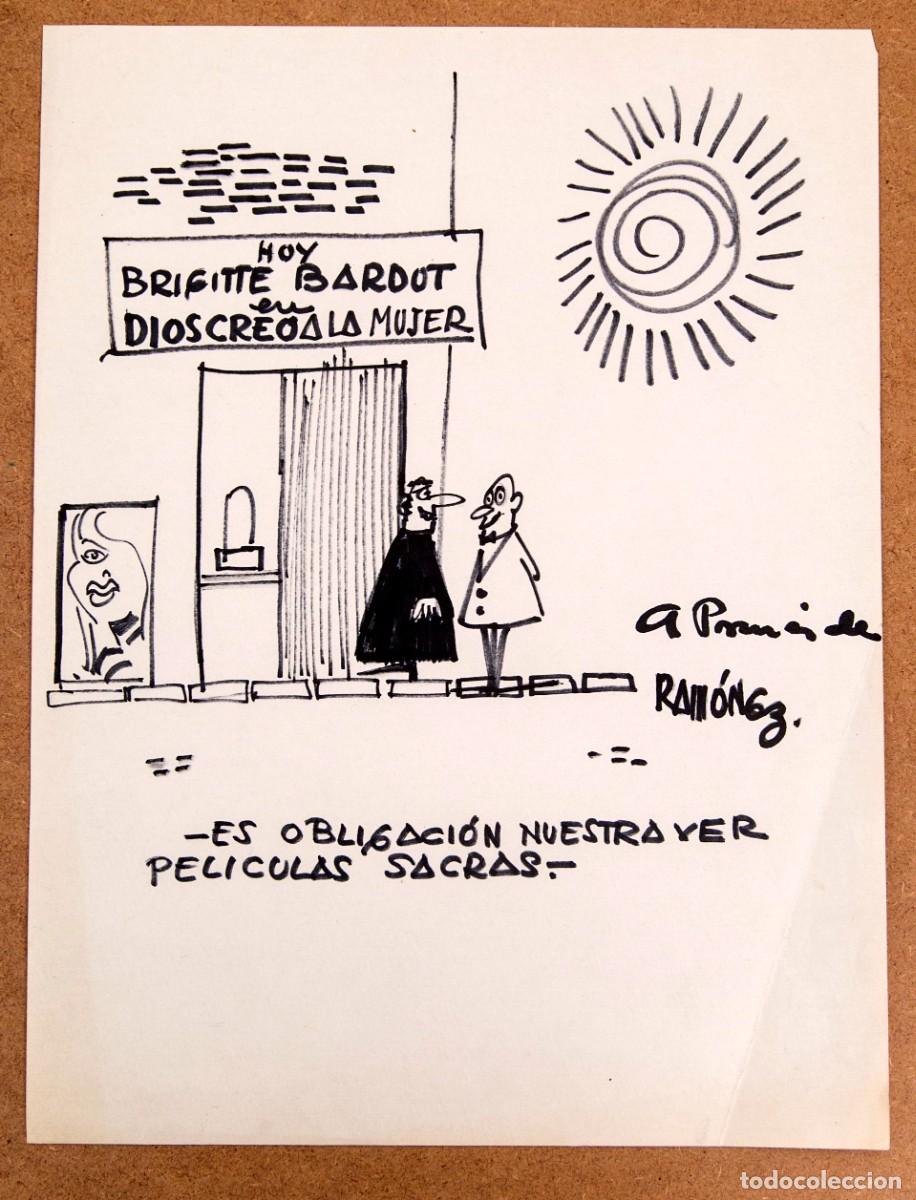 HOY
BRIGITTE BARDOT
en
DIOS CREÓ A LA MUJER
A
de
RAMÓN
—ES OBLIGACIÓN NUESTRA VER
PELICULAS SACRAS.—
todocoleccion